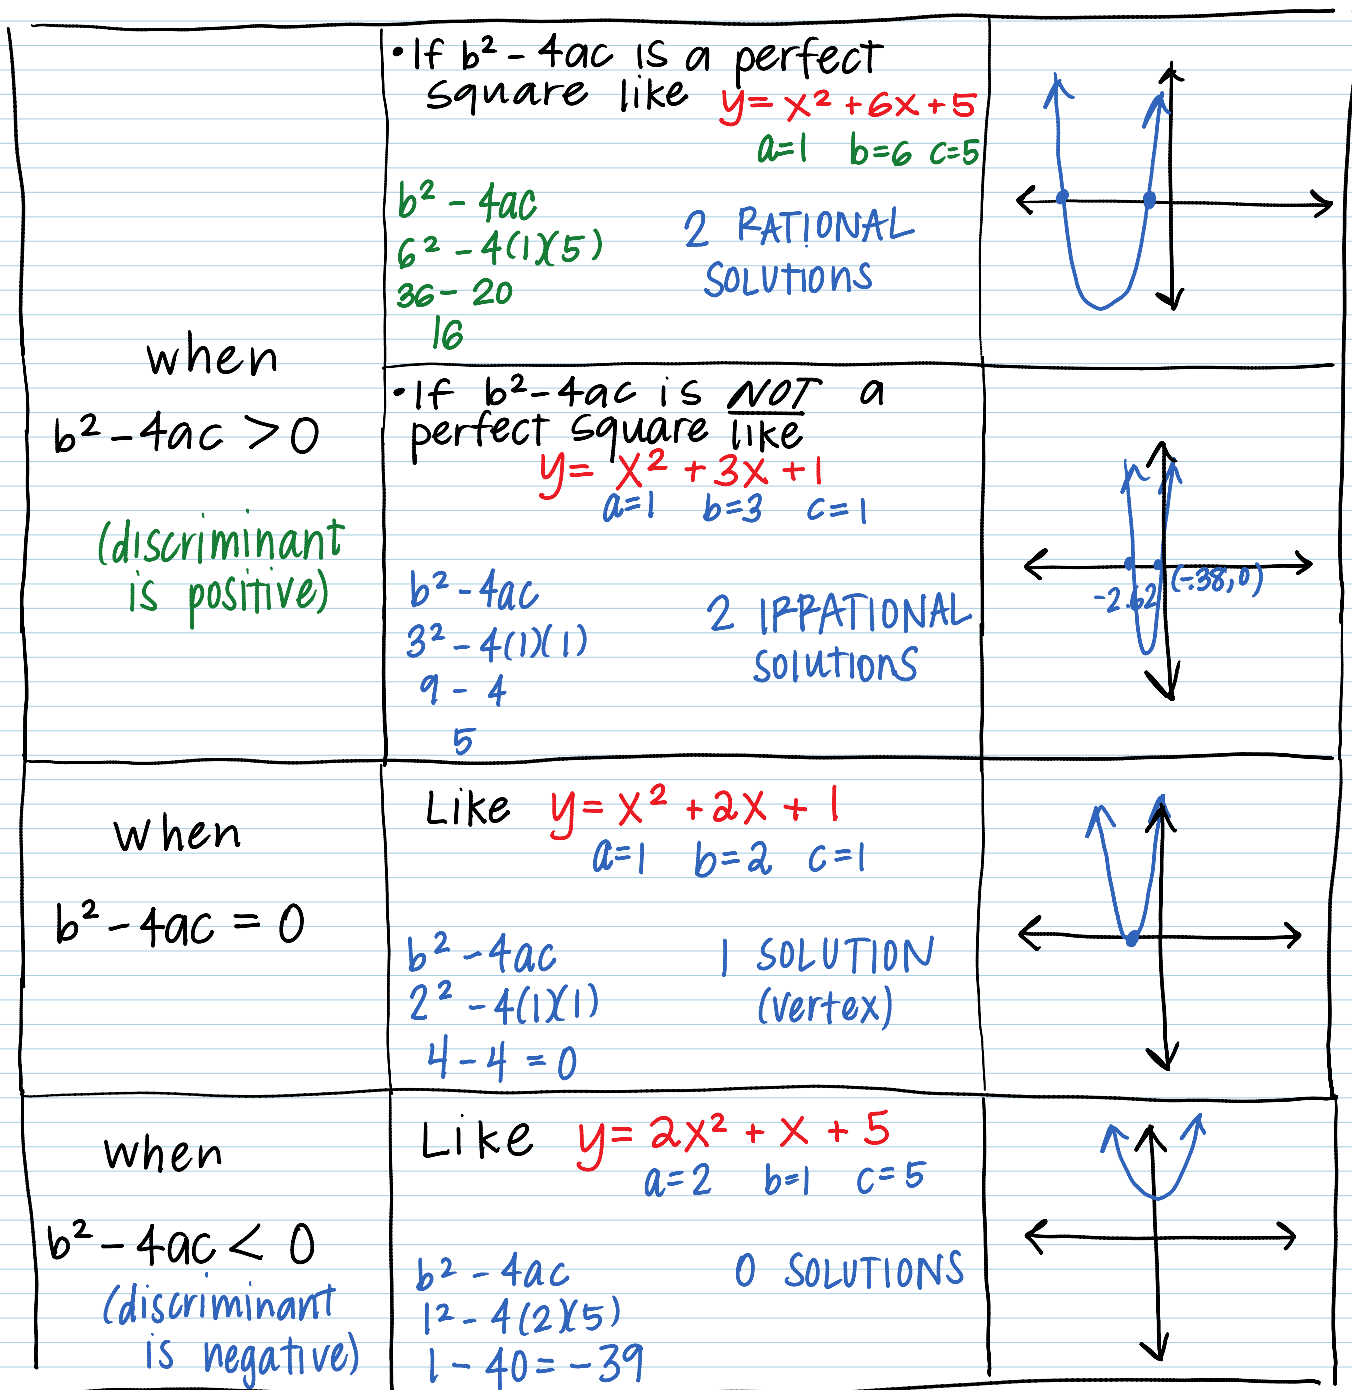 when
b² - 4ac > 0
(discriminant
is positive)
• If b² - 4ac is a perfect
square like y = x² + 6x + 5
a=1 b=6 c=5
b² - 4ac
6² - 4(1)(5)
36 - 20
16
2 RATIONAL
SOLUTIONS
• If b² - 4ac is NOT a
perfect square like
y = x² + 3x + 1
a=1 b=3 c=1
b² - 4ac
3² - 4(1)(1)
9 - 4
5
2 IRRATIONAL
SOlUTIONS
-2.62
(-.38,0)
when
b² - 4ac = 0
Like y = x² + 2x + 1
a=1 b=2 c=1
b² - 4ac
2² - 4(1)(1)
4 - 4 = 0
1 SOLUTION
(vertex)
when
b² - 4ac < 0
(discriminant
is negative)
Like y = 2x² + x + 5
a=2 b=1 c=5
b² - 4ac
1² - 4(2)(5)
1 - 40 = -39
0 SOLUTIONS